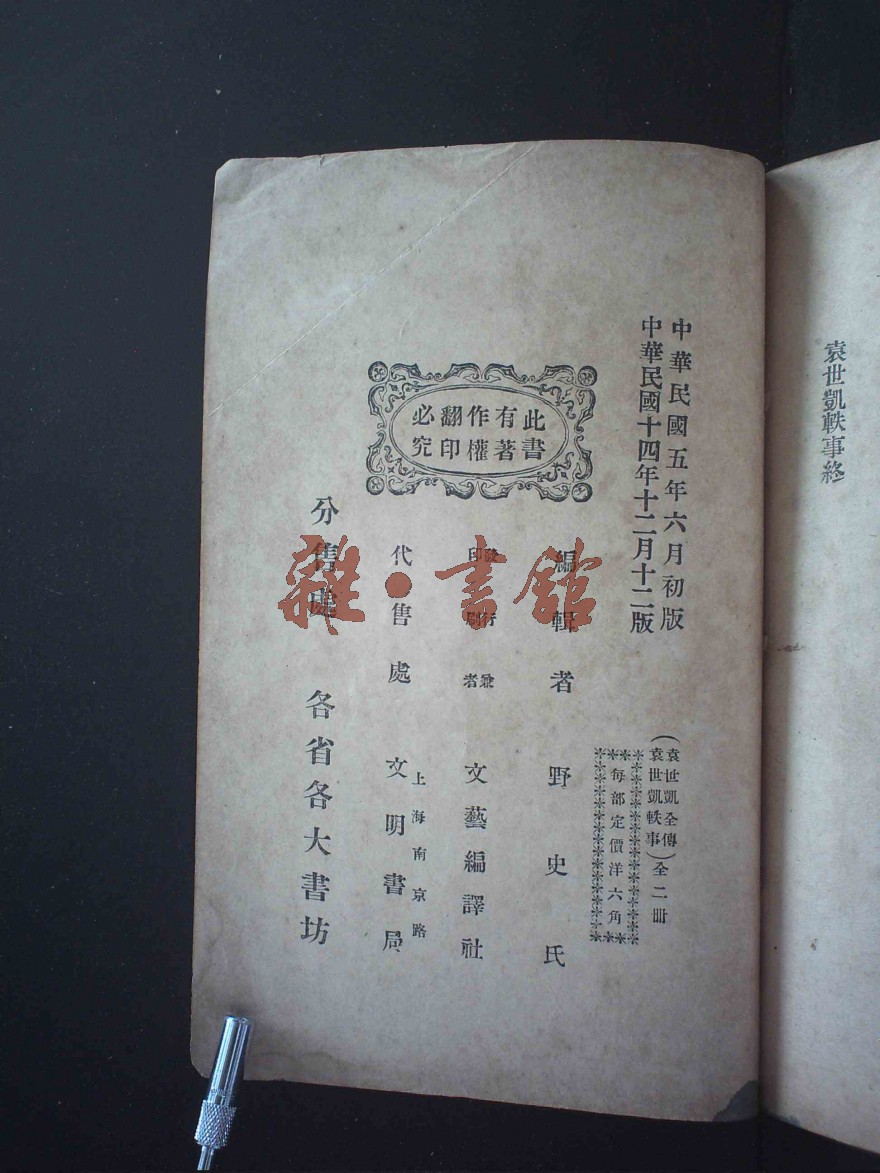 袁世凱軼事終
中華民國五年六月初版
中華民國十四年十二月十二版
(袁世凱全傳
袁世凱軼事)全二冊
每部定價洋六角
此書
有著
作權
翻印
必究
編輯者 野史氏
發行兼
印刷者 文藝編譯社
上海南京路
代售處 文明書局
分售處 各省各大書坊
雜·書館